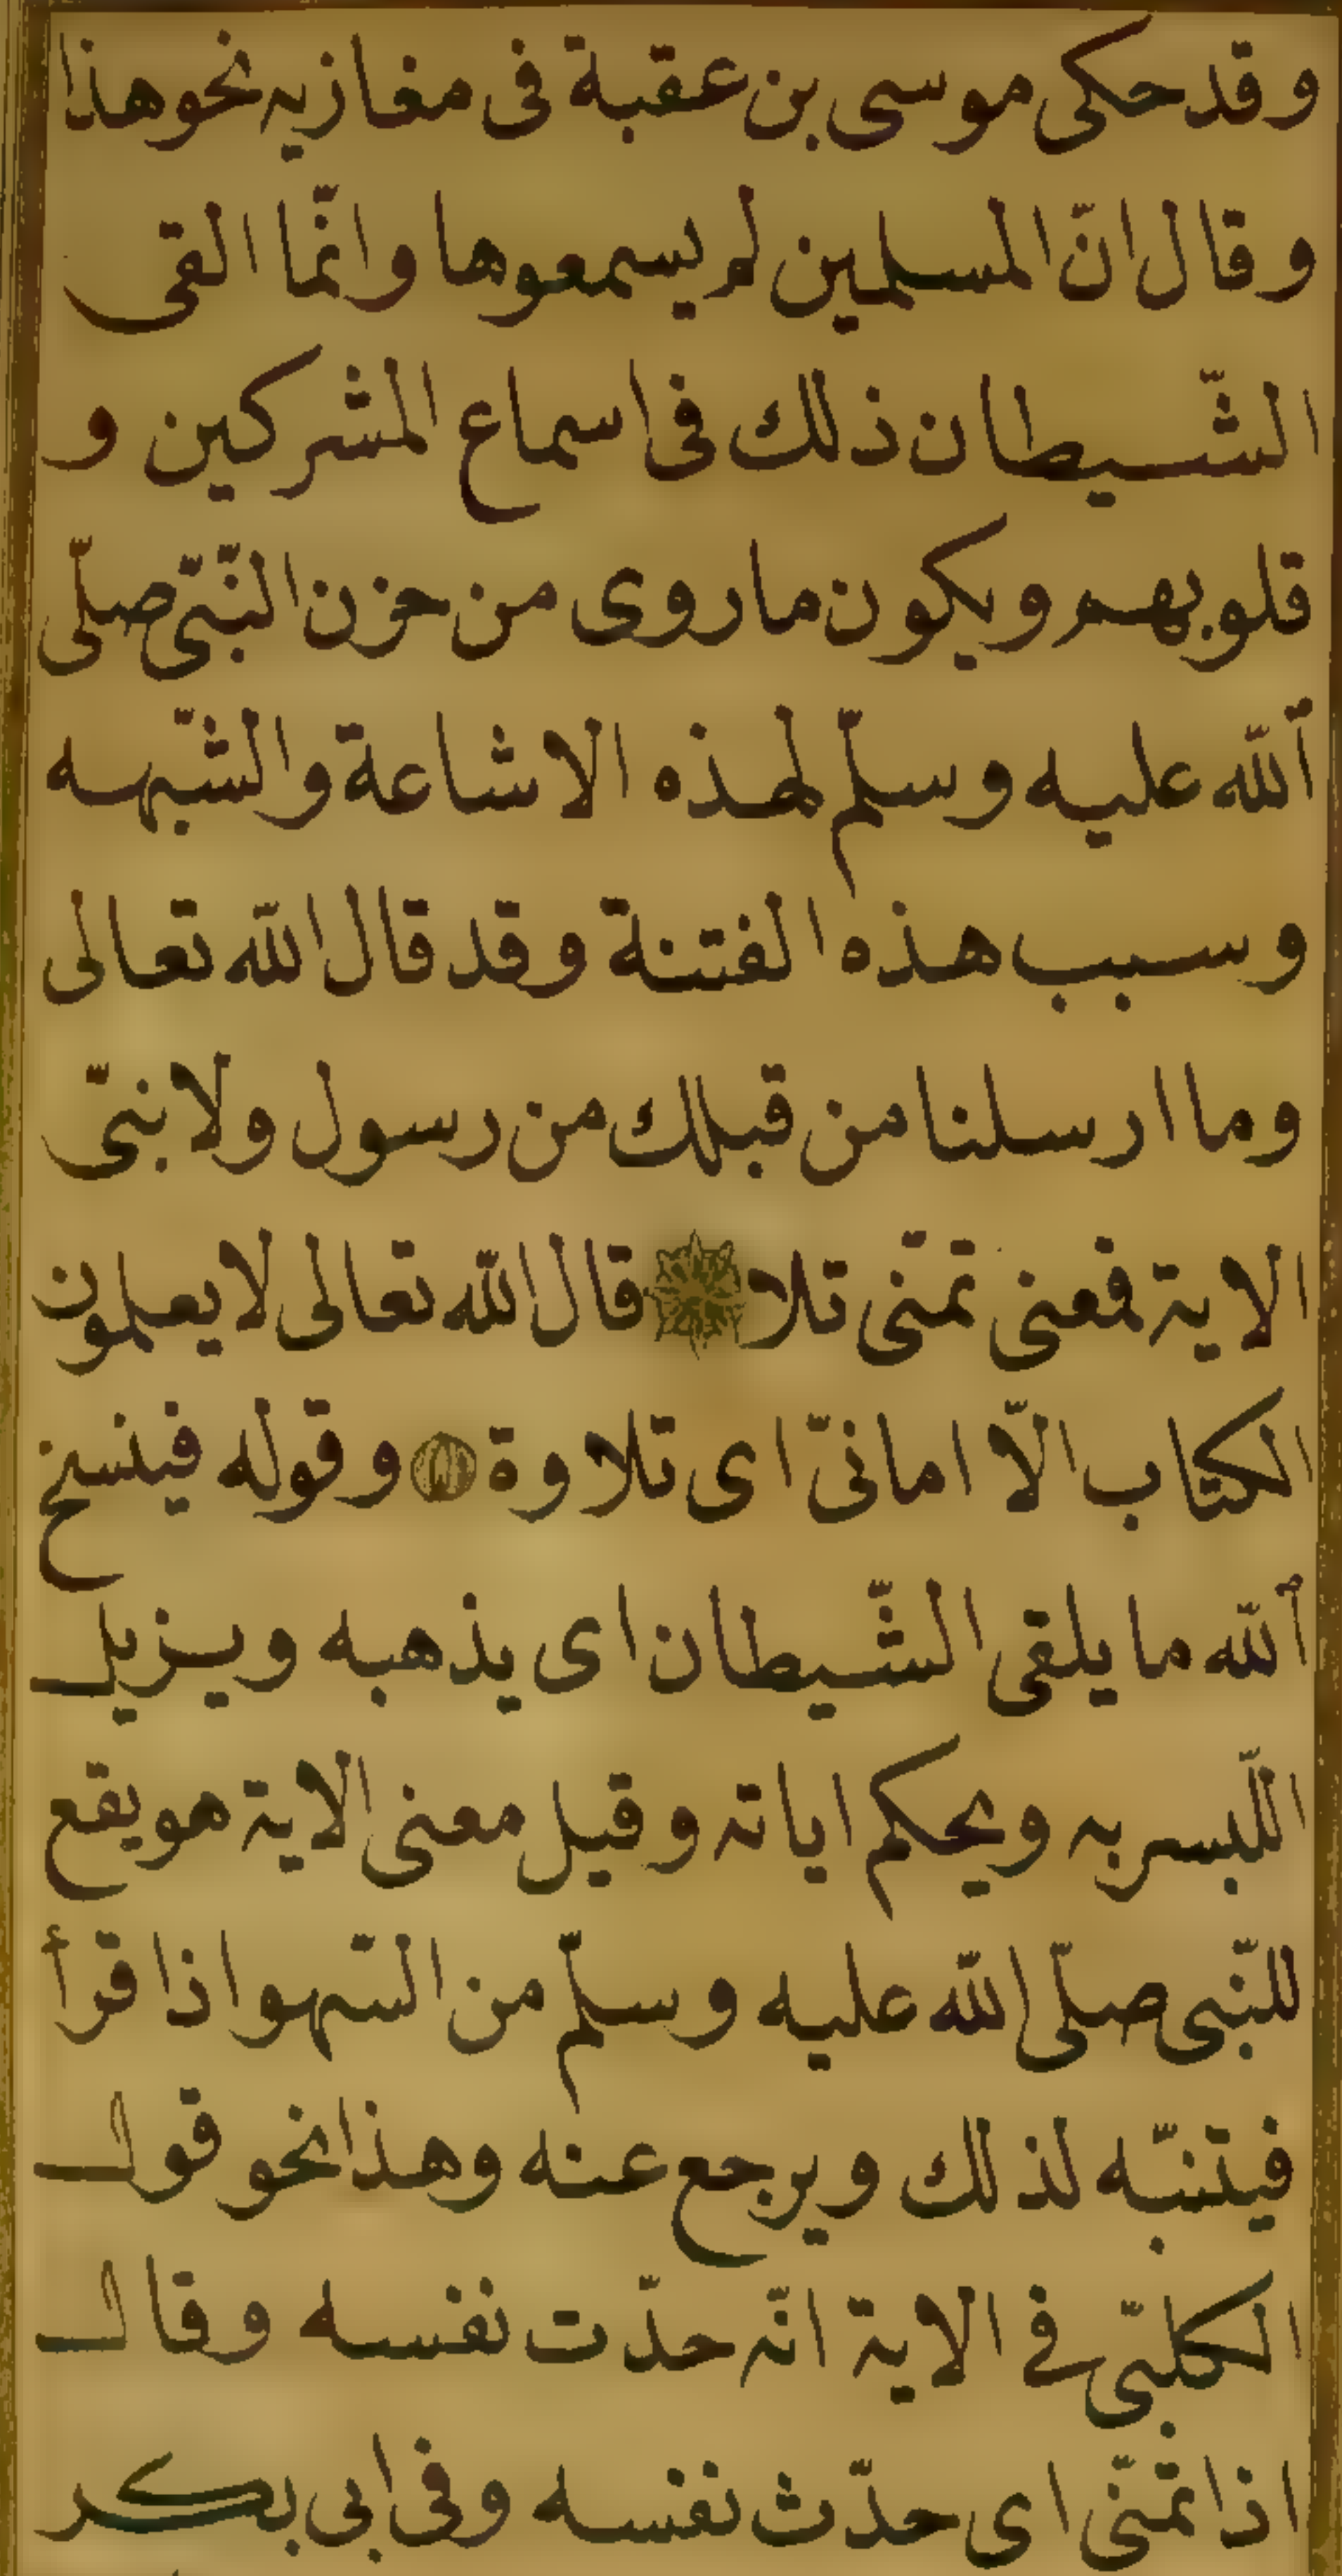 وقد حكى موسى بن عقبة فى مغازيه نحو هذا
وقال انّ المسلمين لم يسمعوها وانّما القى
الشّيطان ذلك فى اسماع المشركين و
قلوبهم ويكون ما روى من حزن النّبىّ صلّى
اللّه عليه وسلّم لهذه الاشاعة والشّبهه
وسبب هذه الفتنة وقد قال اللّه تعالى
وما ارسلنا من قبلك من رسول ولا نبىّ
الاية فمعنى تمنّى تلا قال اللّه تعالى لا يعلمون
الكتاب الّا امانىّ اى تلاوة وقوله فينسخ
اللّه ما يلقى الشّيطان اى يذهبه ويزيل
اللّبس به ويحكم اياته وقيل معنى الاية هو يقع
للنّبى صلّى اللّه عليه وسلّم من السّهو اذا قرأ
فيتنبّه لذلك ويرجع عنه وهذا نحو قول
الكلبىّ فى الاية انّه حدّت نفسه وقال
اذا تمنّى اى حدّث نفسه وفى ابى بكر